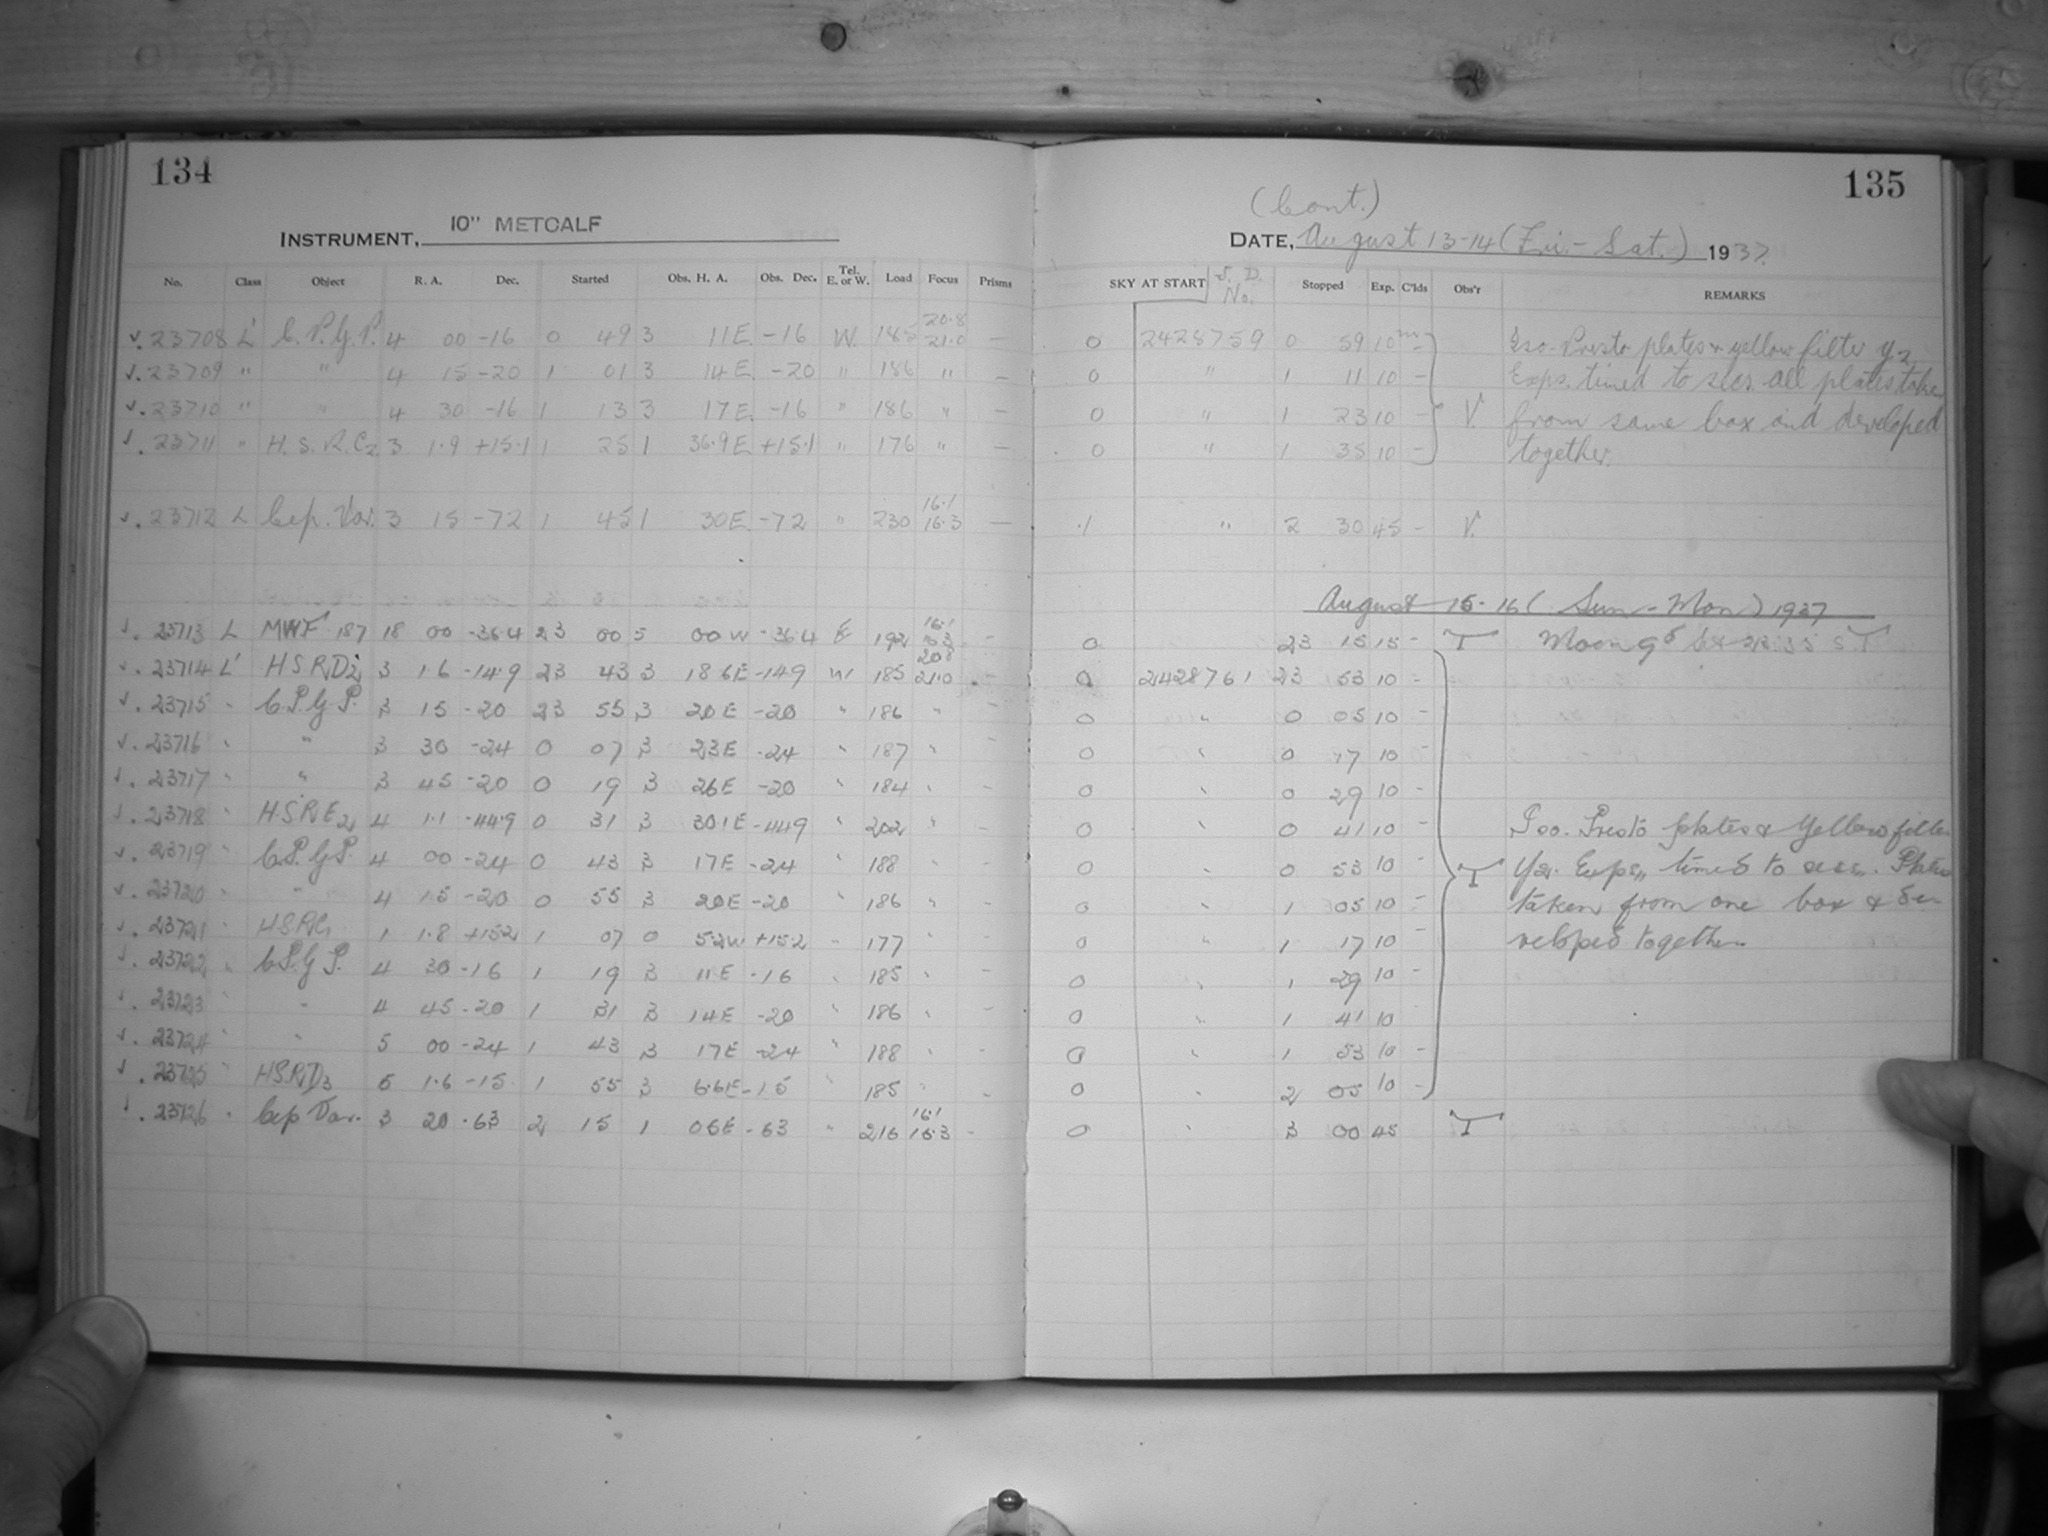 134
INSTRUMENT, 10" METCALF
No. Class Object R. A. Dec. Started Obs. H. A. Obs. Dec. Tel. E. or W. Load Focus Prisms
√. 23708 L' C.P.G.P. 4 00 -16 0 49 3 11E -16 W. 185 20.8 21.0 –
√. 23709 " " 4 15 -20 1 01 3 14E -20 " 186 " –
√. 23710 " " 4 30 -16 1 13 3 17E -16 " 186 " –
√. 23711 " H.S.R.C2 3 1.9 +15.1 1 25 1 36.9E +15.1 " 176 " –
√. 23712 L Cep. Var. 3 15 -72 1 45 1 30E -72 " 230 16.1 16.3 –
√. 23713 L MWF 187 18 00 -36.4 23 00 5 00W -36.4 E 192 16.1 –
√. 23714 L' HSRD2 3 1.6 -14.9 23 43 3 18.6E -14.9 W 185 20.8 21.0 –
√. 23715 " C.P.G.P. 3 15 -20 23 55 3 20E -20 " 186 " –
√. 23716 " " 3 30 -24 0 07 3 23E -24 " 187 " –
√. 23717 " " 3 45 -20 0 19 3 26E -20 " 184 " –
√. 23718 " HSRE2 4 1.1 -44.9 0 31 3 30.1E -44.9 " 202 " –
√. 23719 " C.P.G.P. 4 00 -24 0 43 3 17E -24 " 188 " –
√. 23720 " " 4 15 -20 0 55 3 20E -20 " 186 " –
√. 23721 " HSRC1 1 1.8 +15.2 1 07 0 52W +15.2 " 177 " –
√. 23722 " C.P.G.P. 4 30 -16 1 19 3 11E -16 " 185 " –
√. 23723 " " 4 45 -20 1 31 3 14E -20 " 186 " –
√. 23724 " " 5 00 -24 1 43 3 17E -24 " 188 " –
√. 23725 " HSRD3 5 1.6 -15 1 55 3 6.6E -15 " 185 " –
√. 23726 " Cep Var. 3 20 -63 2 15 1 05E -63 " 216 16.1 16.3 –
135
(Cont.)
DATE, August 13-14 (Fri.-Sat.) 1937.
SKY AT START J. D. No. Stopped Exp. C'lds Obs'r REMARKS
0 2428759 0 59 10m – Iso-Presto plates & yellow filter Y2
0 " 1 11 10 – Exps. timed to secs. all plates taken
0 " 1 23 10 – V. from same box and developed
0 " 1 35 10 – together.
.1 " 2 30 45 – V.
August 15-16 (Sun-Mon) 1937
0 23 15 15 – T Moon
0 2428761 23 53 10 –
0 " 0 05 10 –
0 " 0 17 10 –
0 " 0 29 10 –
0 " 0 41 10 – Iso-Presto plates & Yellow filter
0 " 0 53 10 – T Y2. Exps. timed to secs. Plates
0 " 1 05 10 – taken from one box & de-
0 " 1 17 10 – veloped together.
0 " 1 29 10 –
0 " 1 41 10
0 " 1 53 10 –
0 " 2 05 10 –
0 " 3 00 45 T